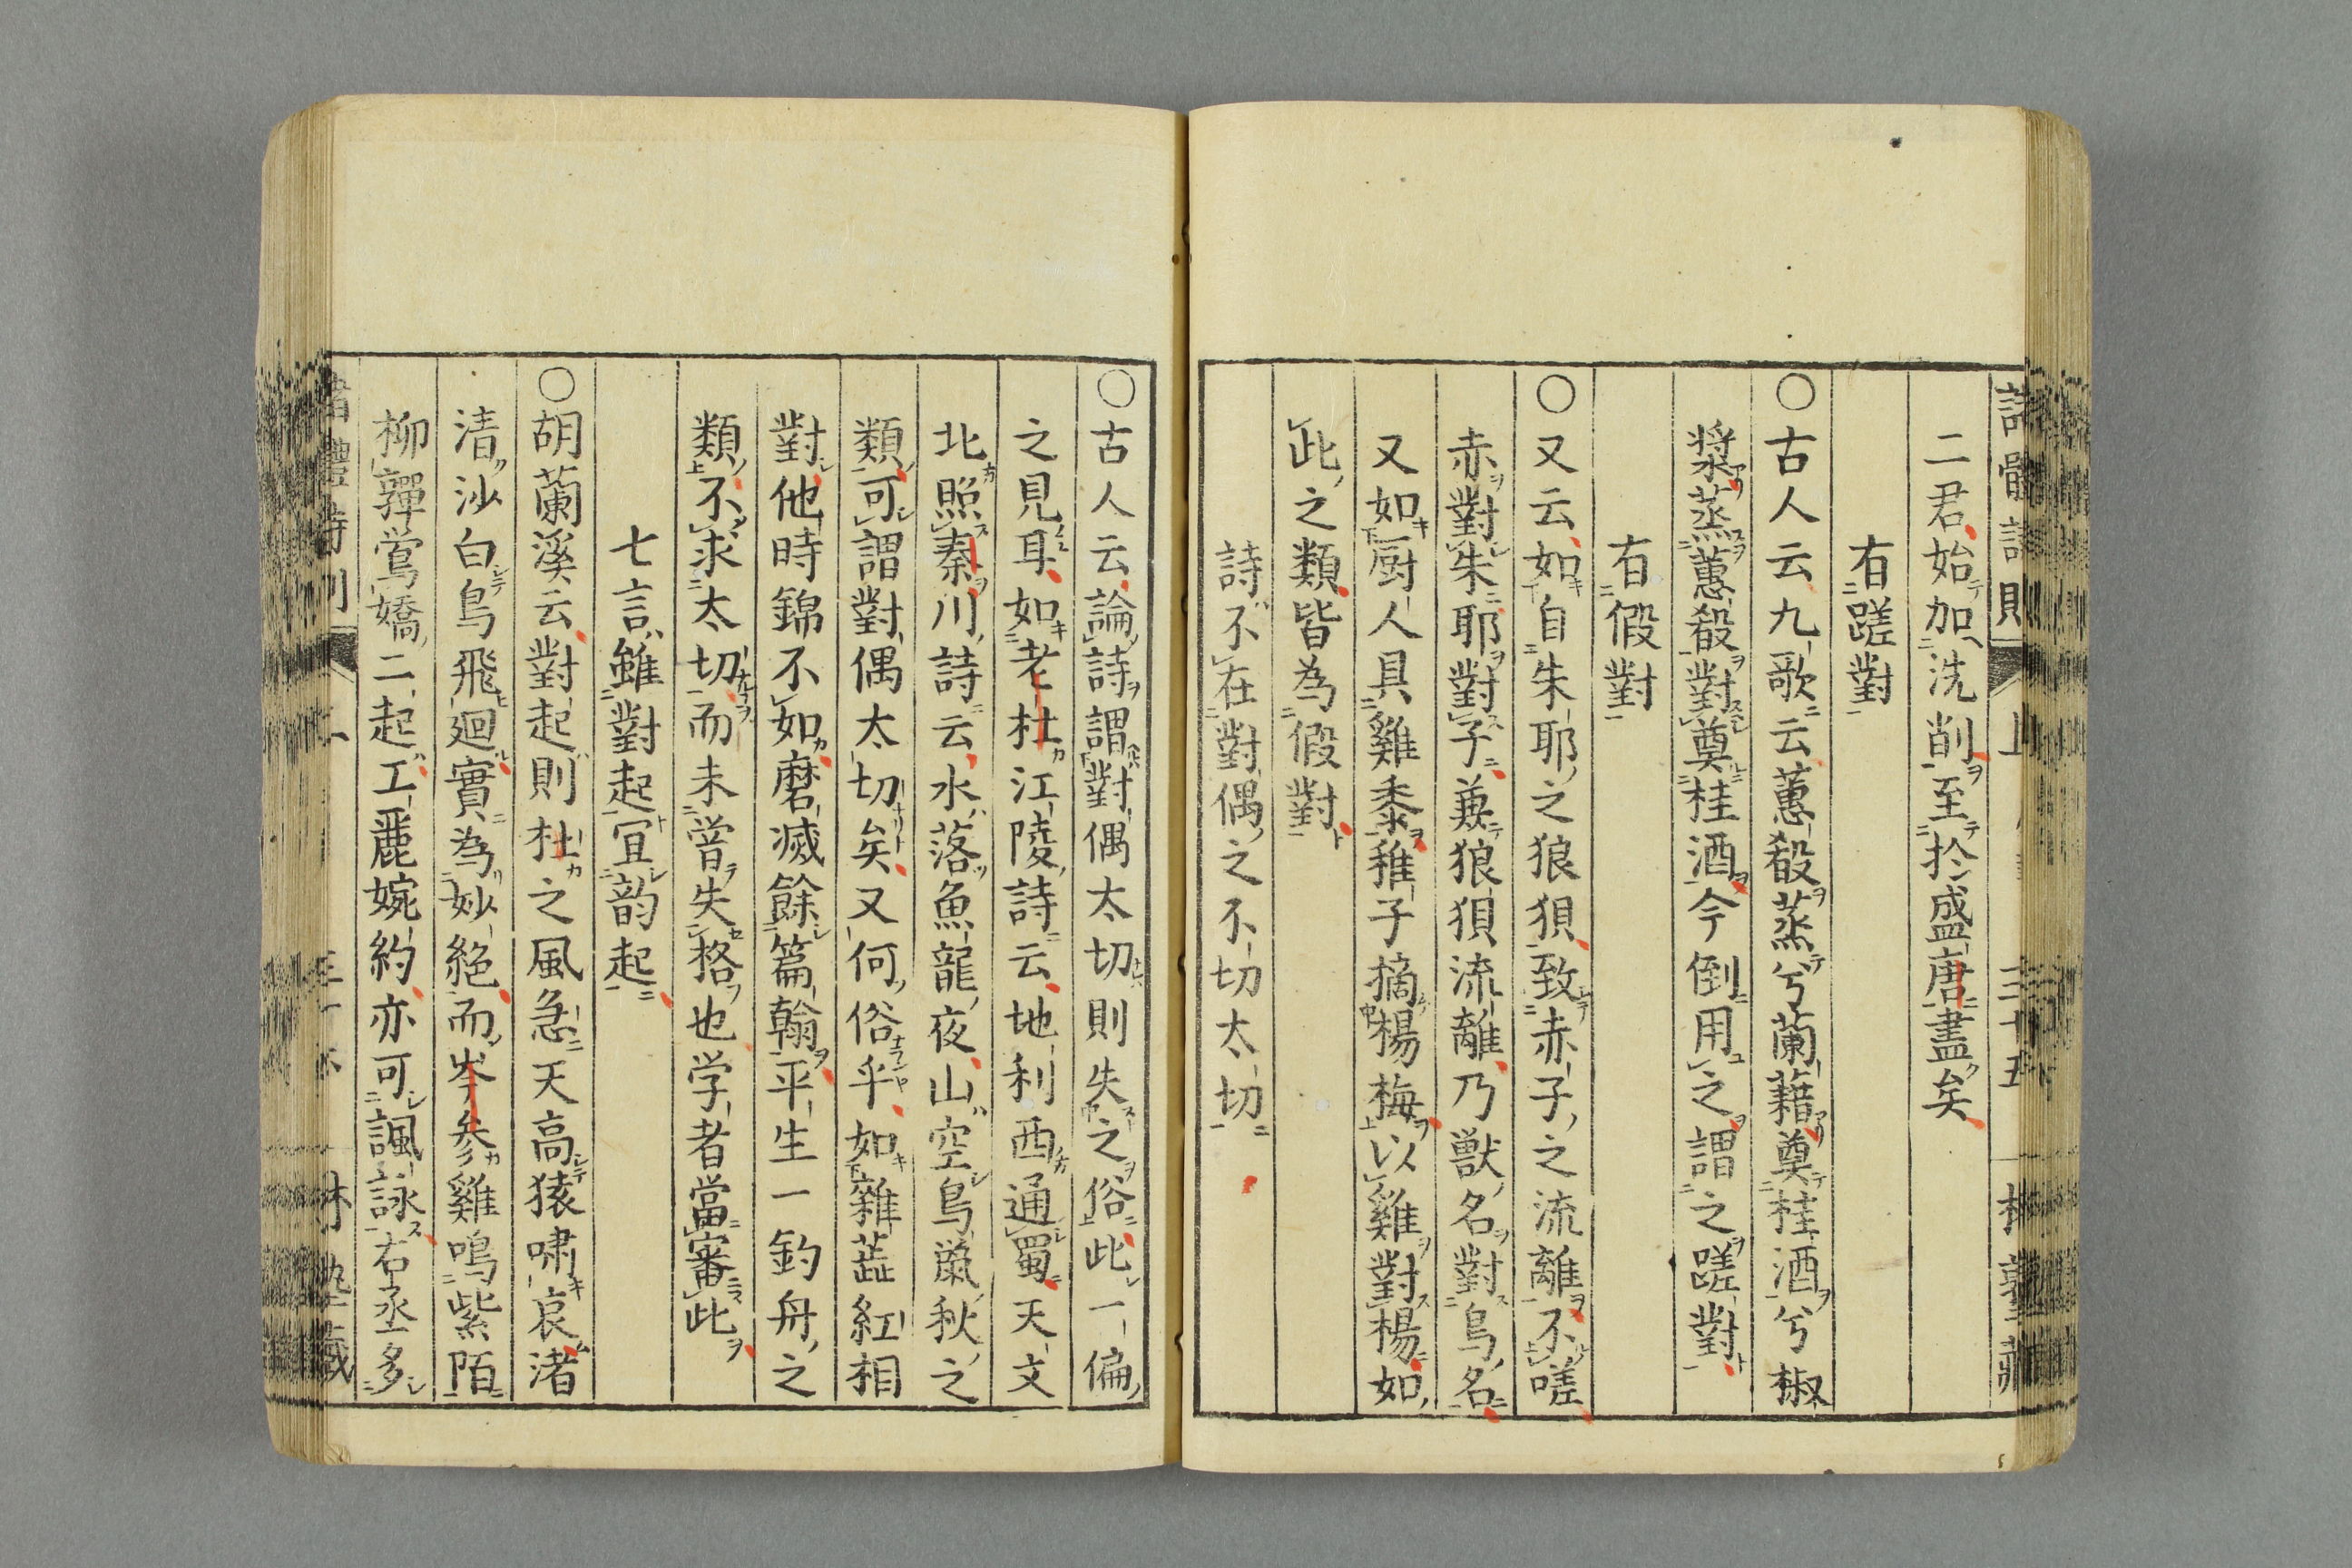 二君始加洗削至於盛唐盡矣
有蹉對
○古人云九歌云蕙殽蒸兮蘭藉奠桂酒兮椒
漿蒸蕙殽對奠桂酒今倒用之謂之蹉對
有假對
○又云如自朱耶之狼狽致赤子之流離不嗟
赤對朱耶對子兼狼狽流離乃獸名對鳥名
又如厨人具雞黍稚子摘楊梅以雞對楊如
此之類皆為假對
詩不在對偶之不切太切
○古人云論詩謂對偶太切則失之俗此一偏
之見耳如老杜江陵詩云地利西通蜀天文
北照秦川詩云水落魚龍夜山空鳥鼠秋之
類可謂對偶太切矣又何俗乎如雜蕋紅相
對他時錦不如磨滅餘篇翰平生一釣舟之
類不求太切而未嘗失格也学者當審此
七言雖對起冝韵起
○胡蘭溪云對起則杜之風急天高猿嘯哀渚
清沙白鳥飛廻實為妙絕而岑参雞鳴紫陌
柳嚲鶯嬌二起工麗婉約亦可諷詠右丞多